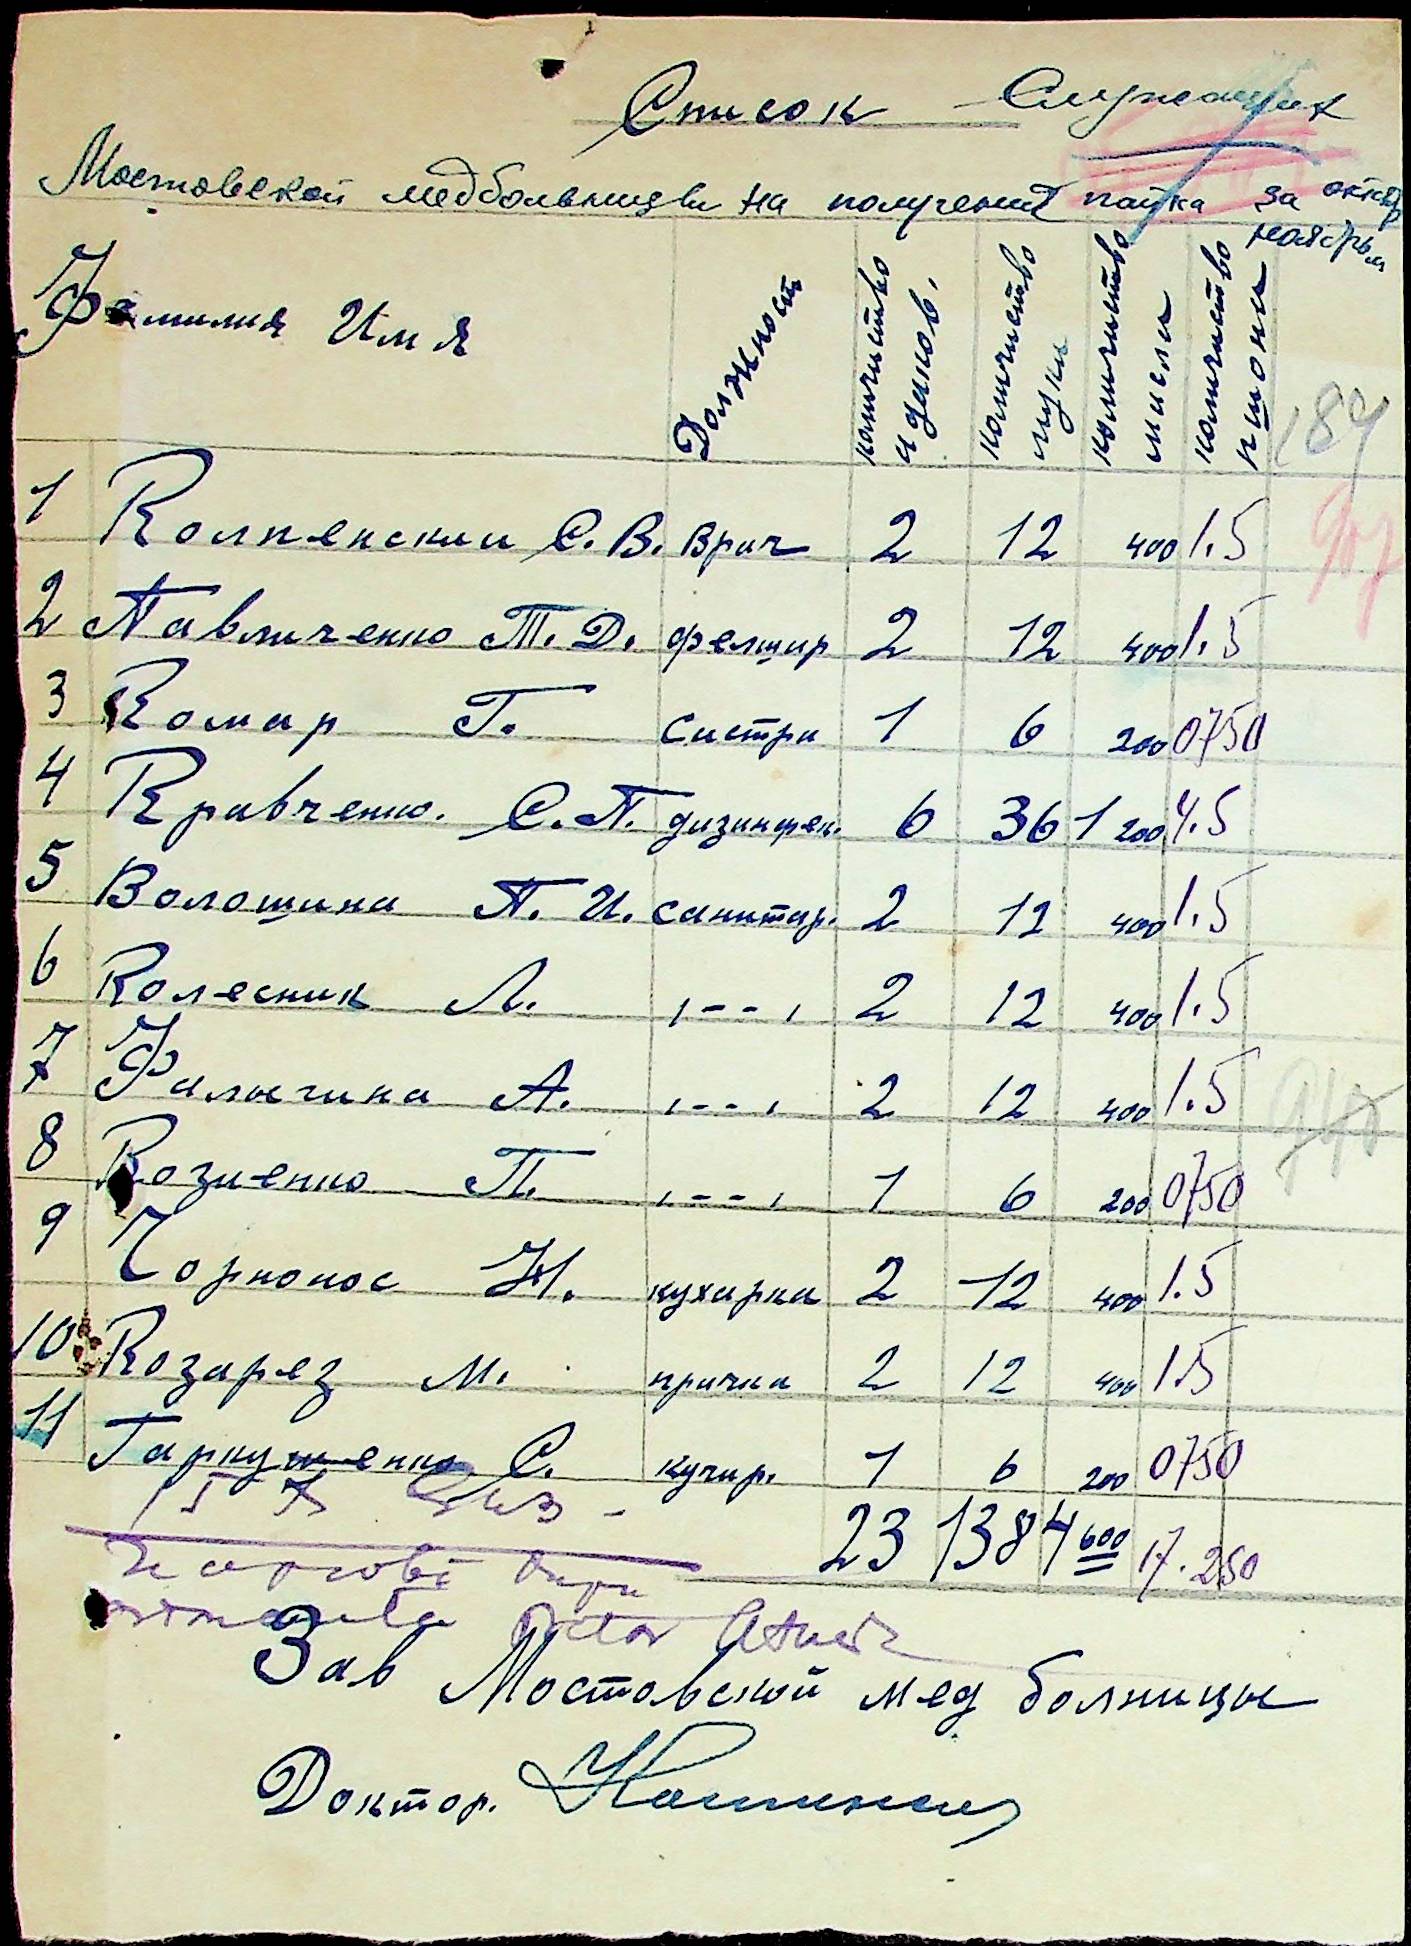 Список Служащих
Мостовской медбольницы на получения пайка за октябр
ноябрь м
Фамилия Имя Должност количиство идаков. количиство муки количиство масла количиство пшона
189
1 Колпенскии С. В. Врач 2 12 400 1.5
2 Павличенко Т. Д. фелшир 2 12 400 1.5
3 Комар Г. систра 1 6 200 0750
4 Кравченко. С. П. дизинфек. 6 36 1 200 4.5
5 Волошина П. И. санитар. 2 12 400 1.5
6 Колесник Л. ,--, 2 12 400 1.5
7 Фалычина А. ,---, 2 12 400 1.5
8 Козиенко П. ,--, 1 6 200 0750
9 Чорнонос Н. кухарка 2 12 400 1.5
10 Козарез М. прачка 2 12 400 1.5
11 Гаркушенко С. кучир. 1 6 200 0750
23 138 4 600 17.250
Зав Мостовской мед болницы
Доктор.